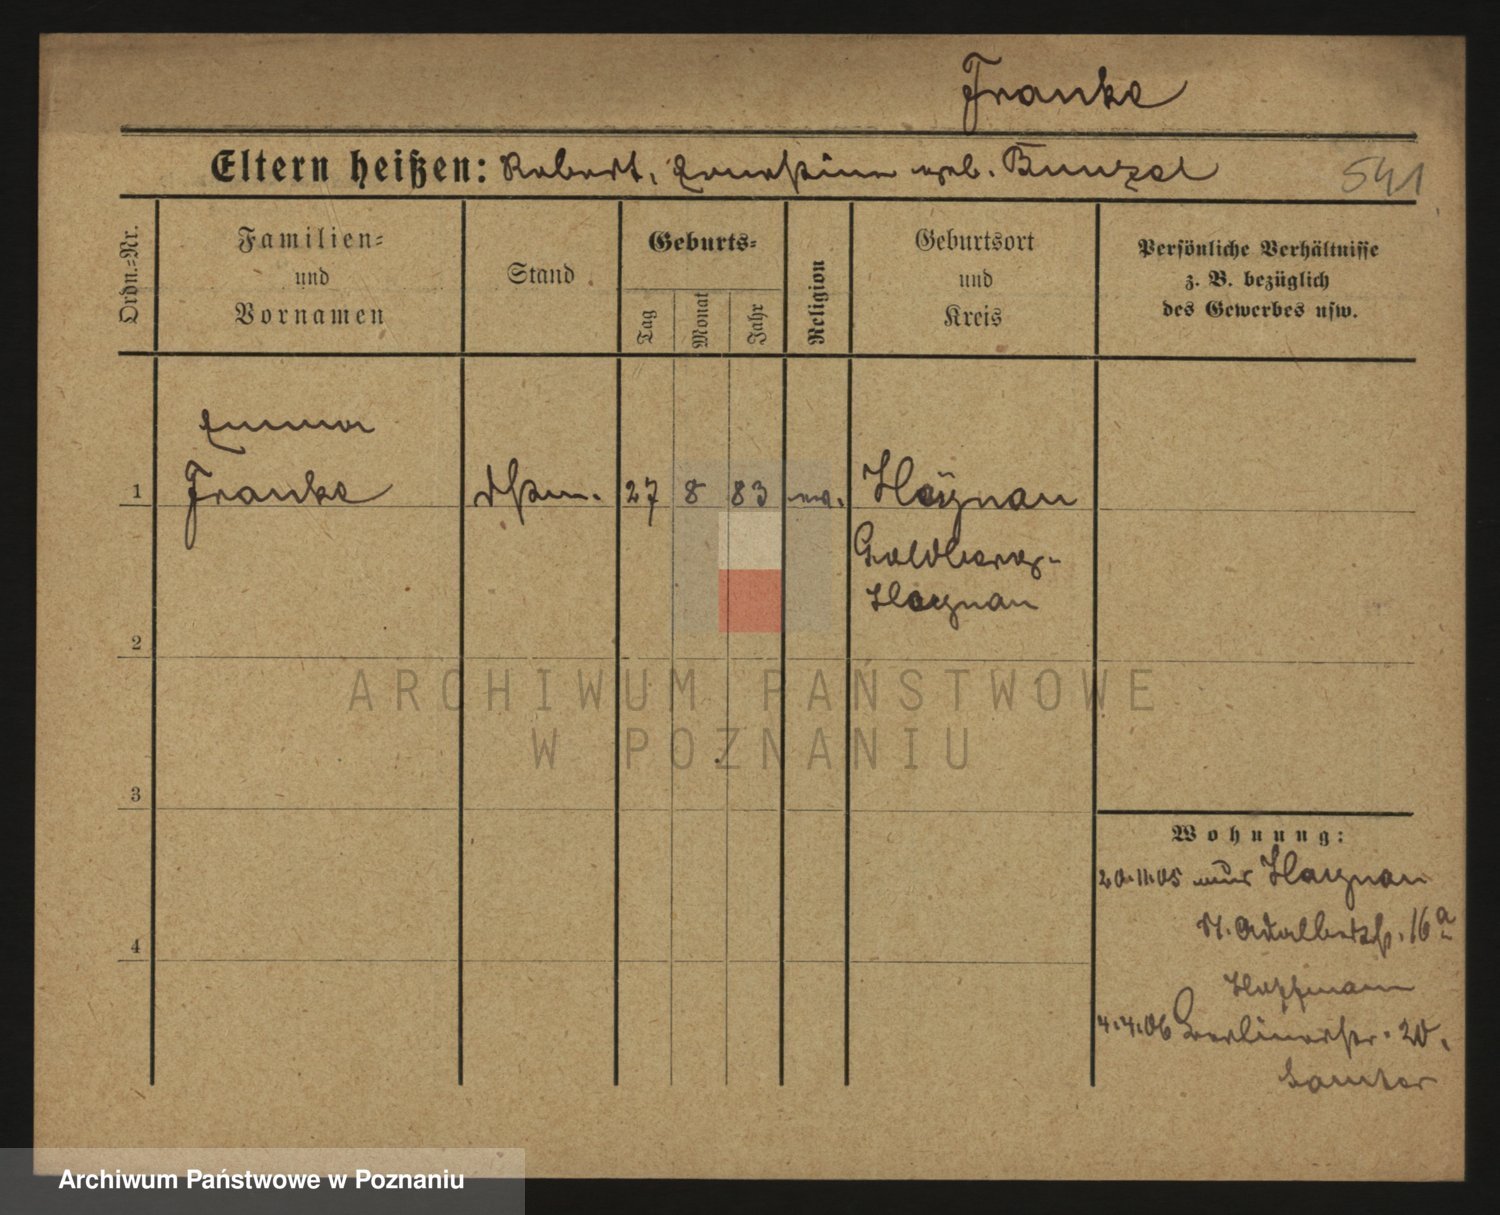 Franke
Eltern heißen: Robert, Ernestine geb. Bunzel
541
Ordn.-Nr.
Familien-
und
Vornamen
Stand
Geburts-
Tag
Monat
Jahr
Religion
Geburtsort
und
Kreis
Persönliche Verhältnisse
z. B. bezüglich
des Gewerbes usw.
Emma
1 Franke 27 8 83 Haynau
Goldberg-
Haynau
2
3
4
ARCHIWUM PAŃSTWOWE
W POZNANIU
Wohnung:
20.11.05 aus Haynau
St. Adalbertstr. 16a
Hoffmann
4.4.06 Berlinerstr. 20.
Samter
Archiwum Państwowe w Poznaniu